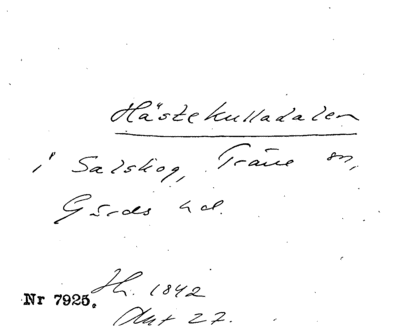 Hästekulladalen
i Salskog, Träne sn,
Gärds hd.
Nr 7925. Th. 1842
Akt 27.